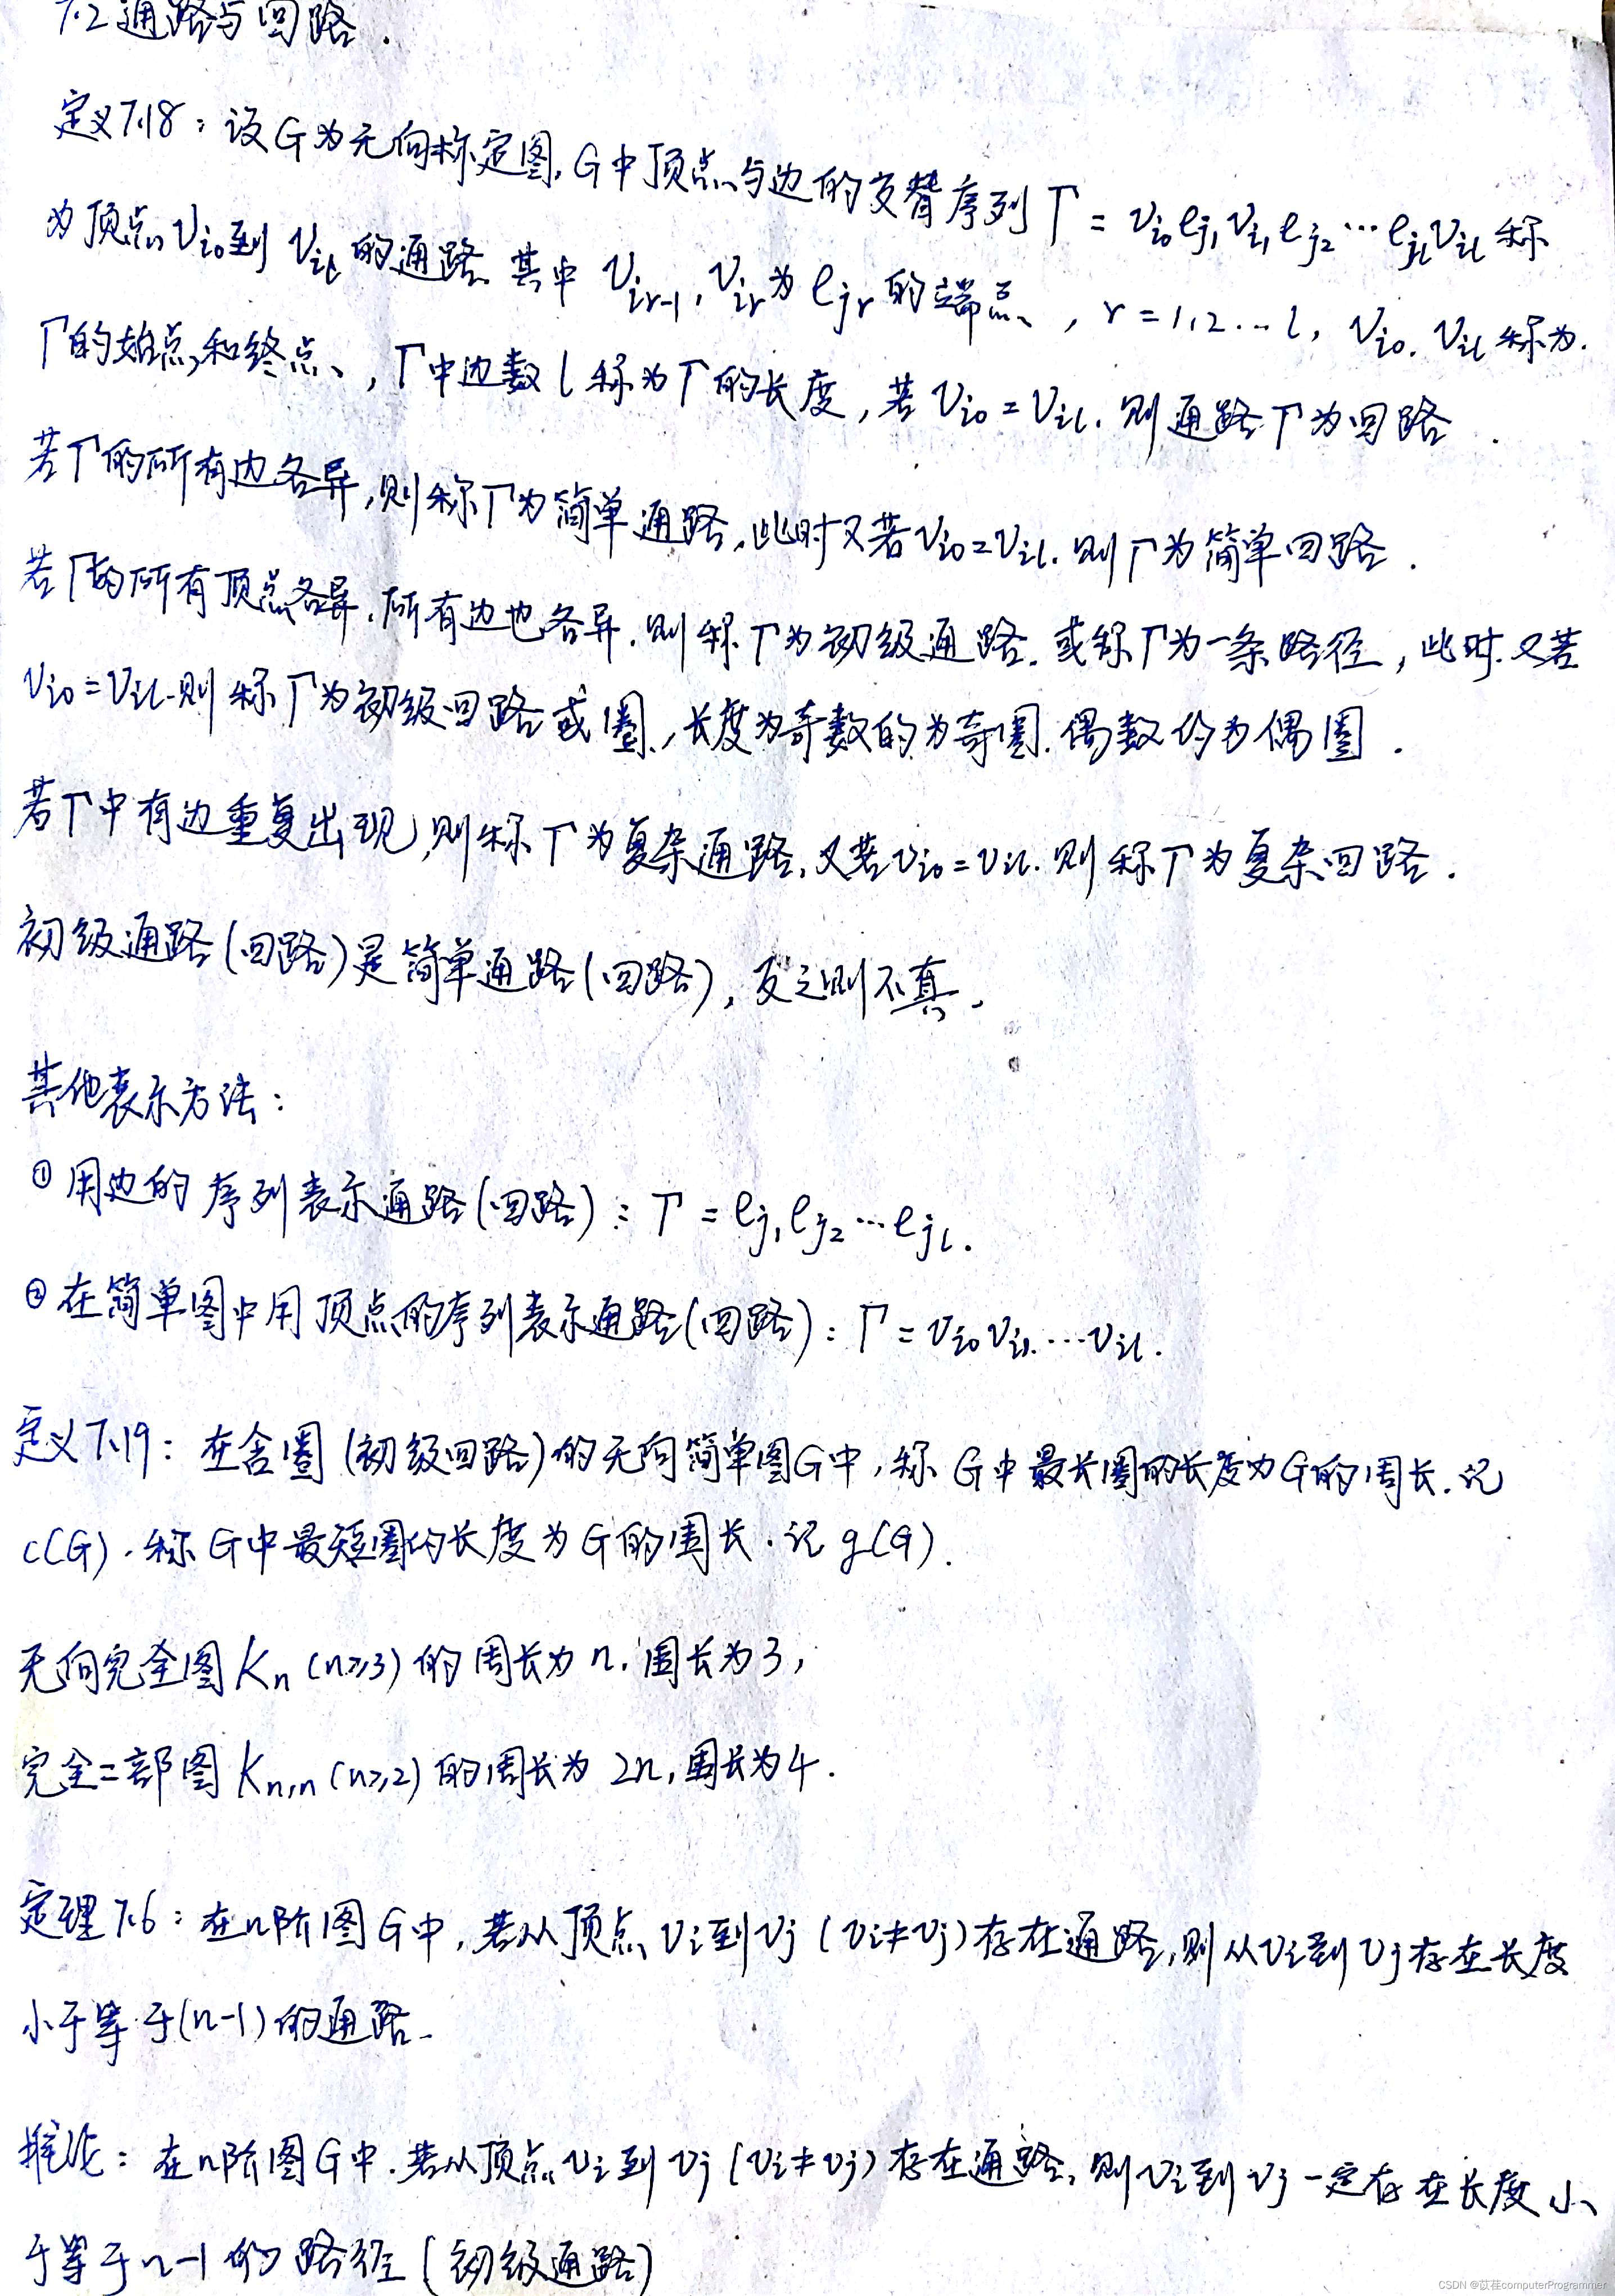 7.2 通路与回路.
定义7.18：设G为无向标定图，G中顶点与边的交替序列 Γ = v_{i0}e_{j1}v_{i1}e_{j2}…e_{jl}v_{il} 称
为顶点v_{i0}到 v_{il} 的通路. 其中 v_{ir-1}, v_{ir} 为 e_{jr} 的端点，r = 1,2…l，v_{i0}. v_{il} 称为.
Γ的始点和终点，Γ中边数 l 称为Γ的长度，若 v_{i0} = v_{il}. 则通路Γ为回路.
若Γ的所有边各异，则称Γ为简单通路，此时又若v_{i0}=v_{il}. 则Γ为简单回路.
若Γ的所有顶点各异，所有边也各异. 则称Γ为初级通路. 或称Γ为一条路径，此时又若
v_{i0} = v_{il} 则称Γ为初级回路或圈，长度为奇数的为奇圈. 偶数为偶圈.
若Γ中有边重复出现，则称Γ为复杂通路，又若v_{i0}=v_{il}. 则称Γ为复杂回路.
初级通路(回路)是简单通路(回路)，反之则不真.
其他表示方法：
① 用边的序列表示通路(回路)：Γ = e_{j1}e_{j2}…e_{jl}.
② 在简单图中用顶点的序列表示通路(回路)：Γ = v_{i0}v_{i1}…v_{il}.
定义7.19：在含圈(初级回路)的无向简单图G中，称G中最长圈的长度为G的周长. 记
c(G). 称G中最短圈的长度为G的围长. 记 g(G).
无向完全图 K_n (n≥3) 的周长为 n. 围长为3，
完全二部图 K_{n,n} (n≥2) 的周长为 2n，围长为4.
定理7.6：在n阶图G中，若从顶点 v_i 到 v_j (v_i≠v_j) 存在通路，则从v_i到v_j存在长度
小于等于(n-1)的通路.
推论：在n阶图G中. 若从顶点v_i到 v_j (v_i≠v_j) 存在通路，则v_i到v_j一定存在长度小
于等于n-1的路径(初级通路)
CSDN @苡荏computerProgrammer